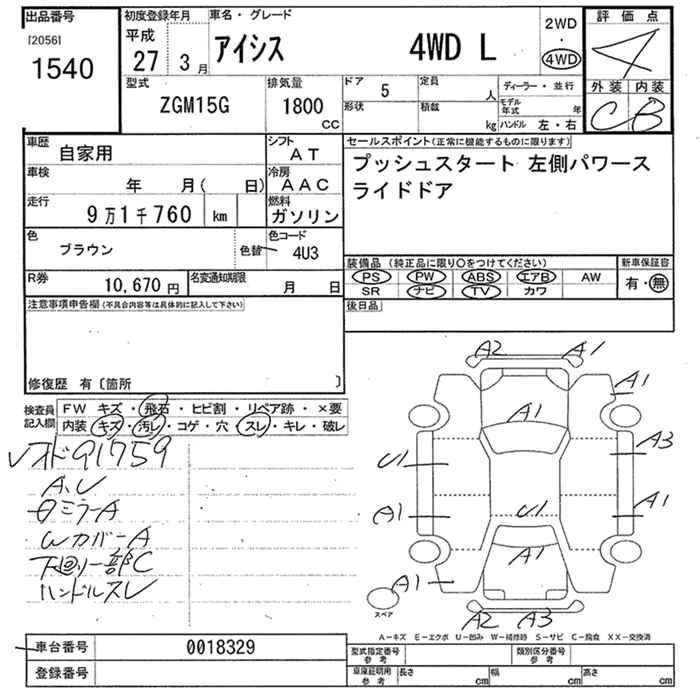 出品番号
[2056]
1540
初度登録年月
平成
27 3月
車名・グレード
アイシス 4WD L
2WD
・
4WD
評価点
4
外装 内装
C B
型式
ZGM15G
排気量
1800
CC
ドア 5
形状
定員 人
積載 kg
ディーラー・並行
モデル年式 年
ハンドル 左・右
車歴
自家用
シフト
AT
車検
年 月( 日)
冷房
AAC
走行
9万1千760 km
燃料
ガソリン
色
ブラウン
色替
色コード
4U3
R券
10,670 円
名変通知期限
月 日
セールスポイント(正常に機能するものに限ります)
プッシュスタート 左側パワース
ライドドア
装備品 (純正品に限り○をつけてください)
PS PW ABS エアB AW
SR ナビ TV カワ
新車保証書
有・無
後日品
注意事項申告欄(不具合内容等は具体的に記入して下さい)
修復歴 有〔箇所 〕
検査員
記入欄
FW キズ・飛石・ヒビ割・リペア跡・×要
内装 キズ・汚レ・コゲ・穴・スレ・キレ・破レ
レオド91759
A、U
ミラーA
Wカバー A
下回り一部C
ハンドルスレ
A2 A1
A1
A1
A3
U1
A1
U1
A1
A1
A1
A2 A3
スペア
A−キズ E−エクボ U−凹み W−補修跡 S−サビ C−腐食 XX−交換済
車台番号 0018329
登録番号
型式指定番号
参考
類別区分番号
参考
車庫証明用
参考
長さ cm 幅 cm 高さ cm